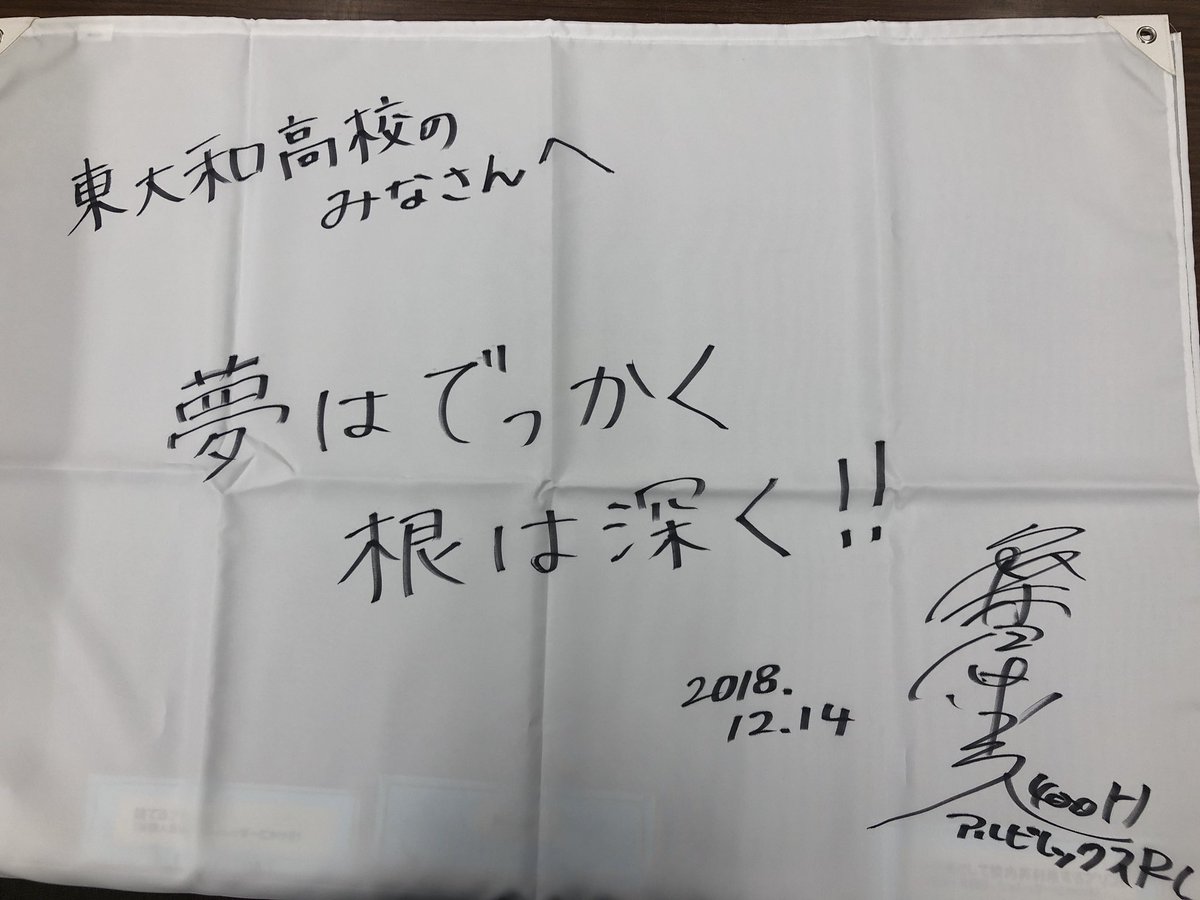 東大和高校の
みなさんへ
夢はでっかく
根は深く!!
2018.
12.14
400H
アルビレックスRC